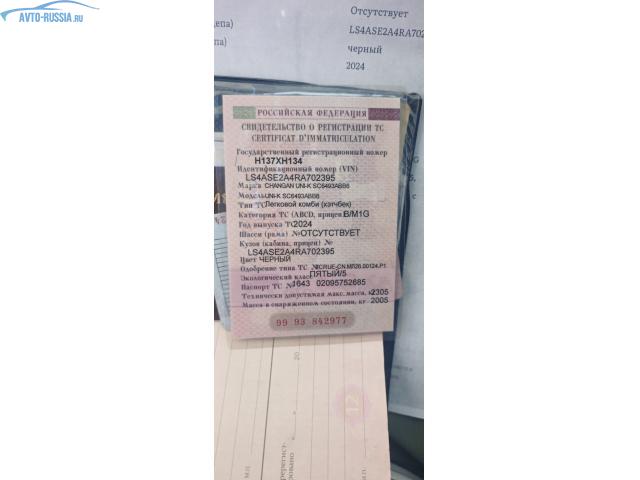 AVTO-RUSSIA.ru
Отсутствует
LS4ASE2A4RA702
черный
2024
РОССИЙСКАЯ ФЕДЕРАЦИЯ
СВИДЕТЕЛЬСТВО О РЕГИСТРАЦИИ ТС
CERTIFICAT D'IMMATRICULATION
Государственный регистрационный номер
Н137ХН134
Идентификационный номер (VIN)
LS4ASE2A4RA702395
Марка CHANGAN UNI-K SC6493ABB6
Модель UNI-K SC6493ABB6
Тип ТС Легковой комби (хэтчбек)
Категория ТС (ABCD, прицеп) B/M1G
Год выпуска ТС 2024
Шасси (рама) № ОТСУТСТВУЕТ
Кузов (кабина, прицеп) №
LS4ASE2A4RA702395
Цвет ЧЕРНЫЙ
Одобрение типа ТС №
Экологический класс ПЯТЫЙ/5
Паспорт ТС № 1643 02095752685
Технически допустимая макс. масса, кг 2305
Масса в снаряженном состоянии, кг 2005
99 93 842977
20
12
м.п.